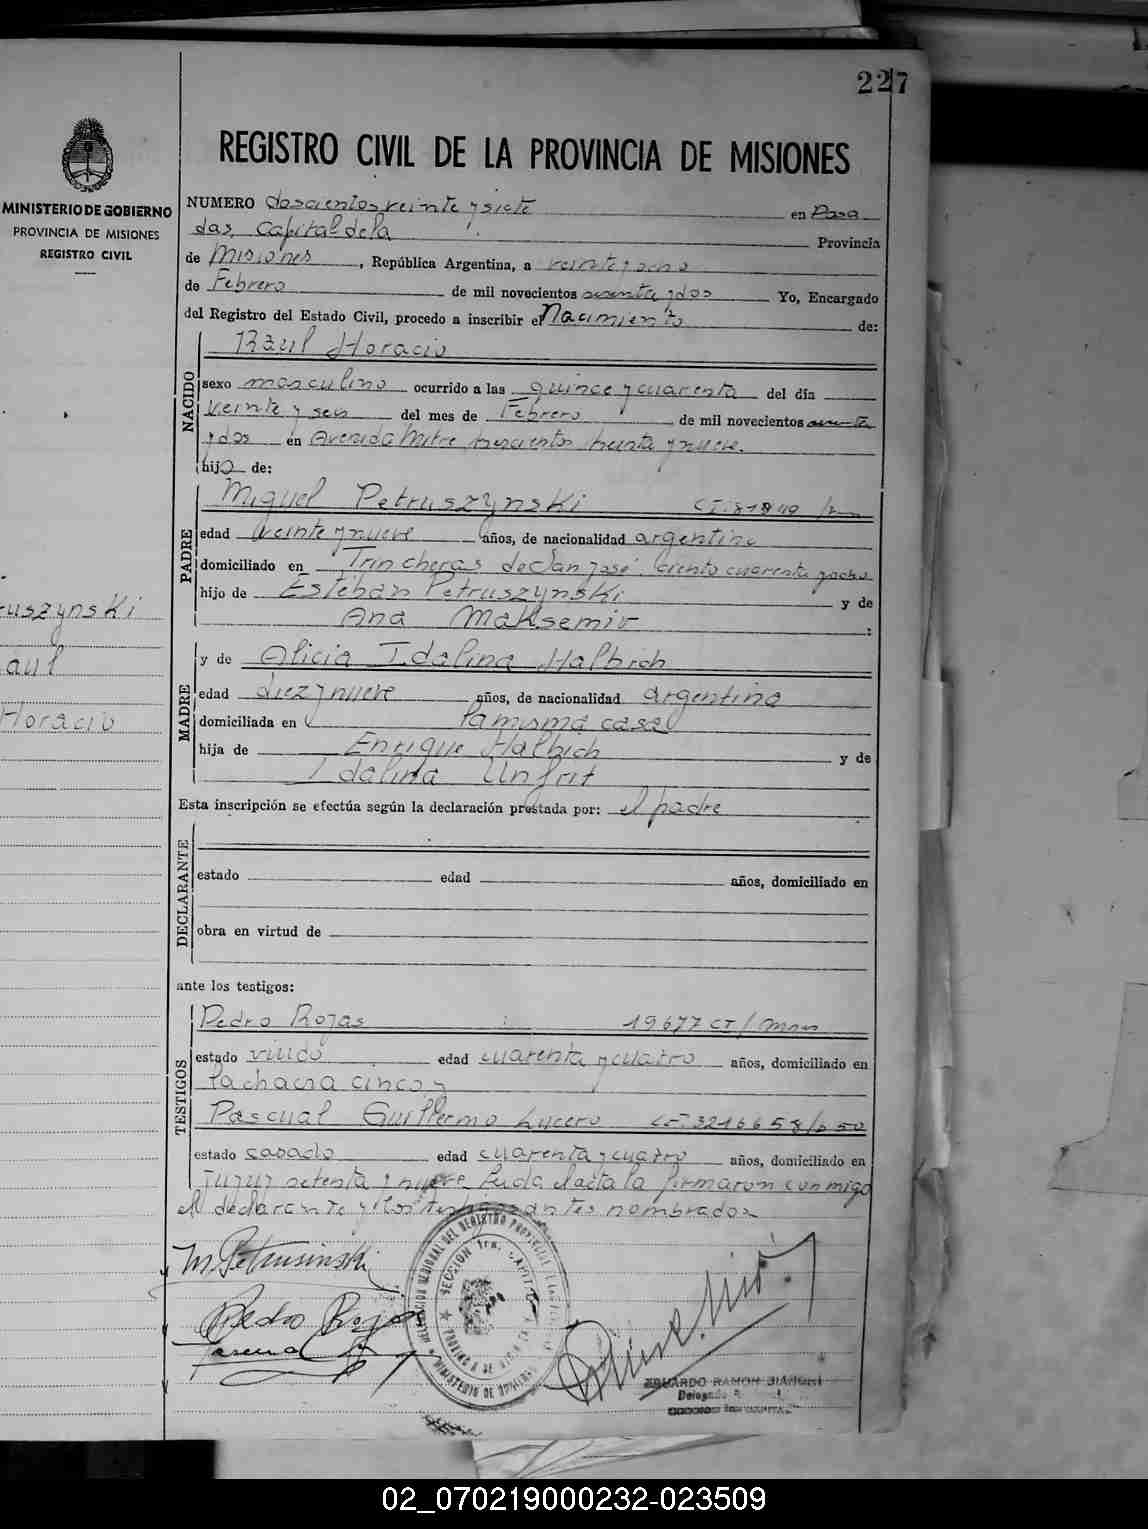 227
REGISTRO CIVIL DE LA PROVINCIA DE MISIONES
MINISTERIO DE GOBIERNO
PROVINCIA DE MISIONES
REGISTRO CIVIL
NUMERO doscientos veinte y siete en Posa
das, Capital de la Provincia
de Misiones, República Argentina, a veinte y ocho
de Febrero de mil novecientos sesenta y dos Yo, Encargado
del Registro del Estado Civil, procedo a inscribir el Nacimiento de:
NACIDO
Raul Horacio
sexo masculino ocurrido a las quince y cuarenta del día
veinte y seis del mes de Febrero de mil novecientos sesenta
y dos en Avenida Mitre trescientos treinta y nueve.
hijo de:
PADRE
Miguel Petruszynski
edad veinte y nueve años, de nacionalidad argentino
domiciliado en Trincheras de San José ciento cuarenta y ocho
hijo de Estéban Petruszynski y de
Ana Maksemiv :
ruszynski
aul
Horacio
MADRE
y de Alicia Idalina Halbich
edad diez y nueve años, de nacionalidad argentina
domiciliada en la misma casa
hija de Enrique Halbich y de
Idalina Unfrit
Esta inscripción se efectúa según la declaración prestada por: el padre
DECLARANTE
estado edad años, domiciliado en
obra en virtud de
ante los testigos:
TESTIGOS
Pedro Rojas 19677 CI/Mnes
estado viudo edad cuarenta y cuatro años, domiciliado en
la chacra cinco y
Pascual Guillermo Lucero
estado casado edad cuarenta y cuatro años, domiciliado en
Jujuy setenta y nueve Leida el acta la firmaron conmigo
el declarante y los testigos antes nombrados
M. Petrusinski
Pedro Rojas
EDUARDO RAMON BIANCHI
02_070219000232-023509